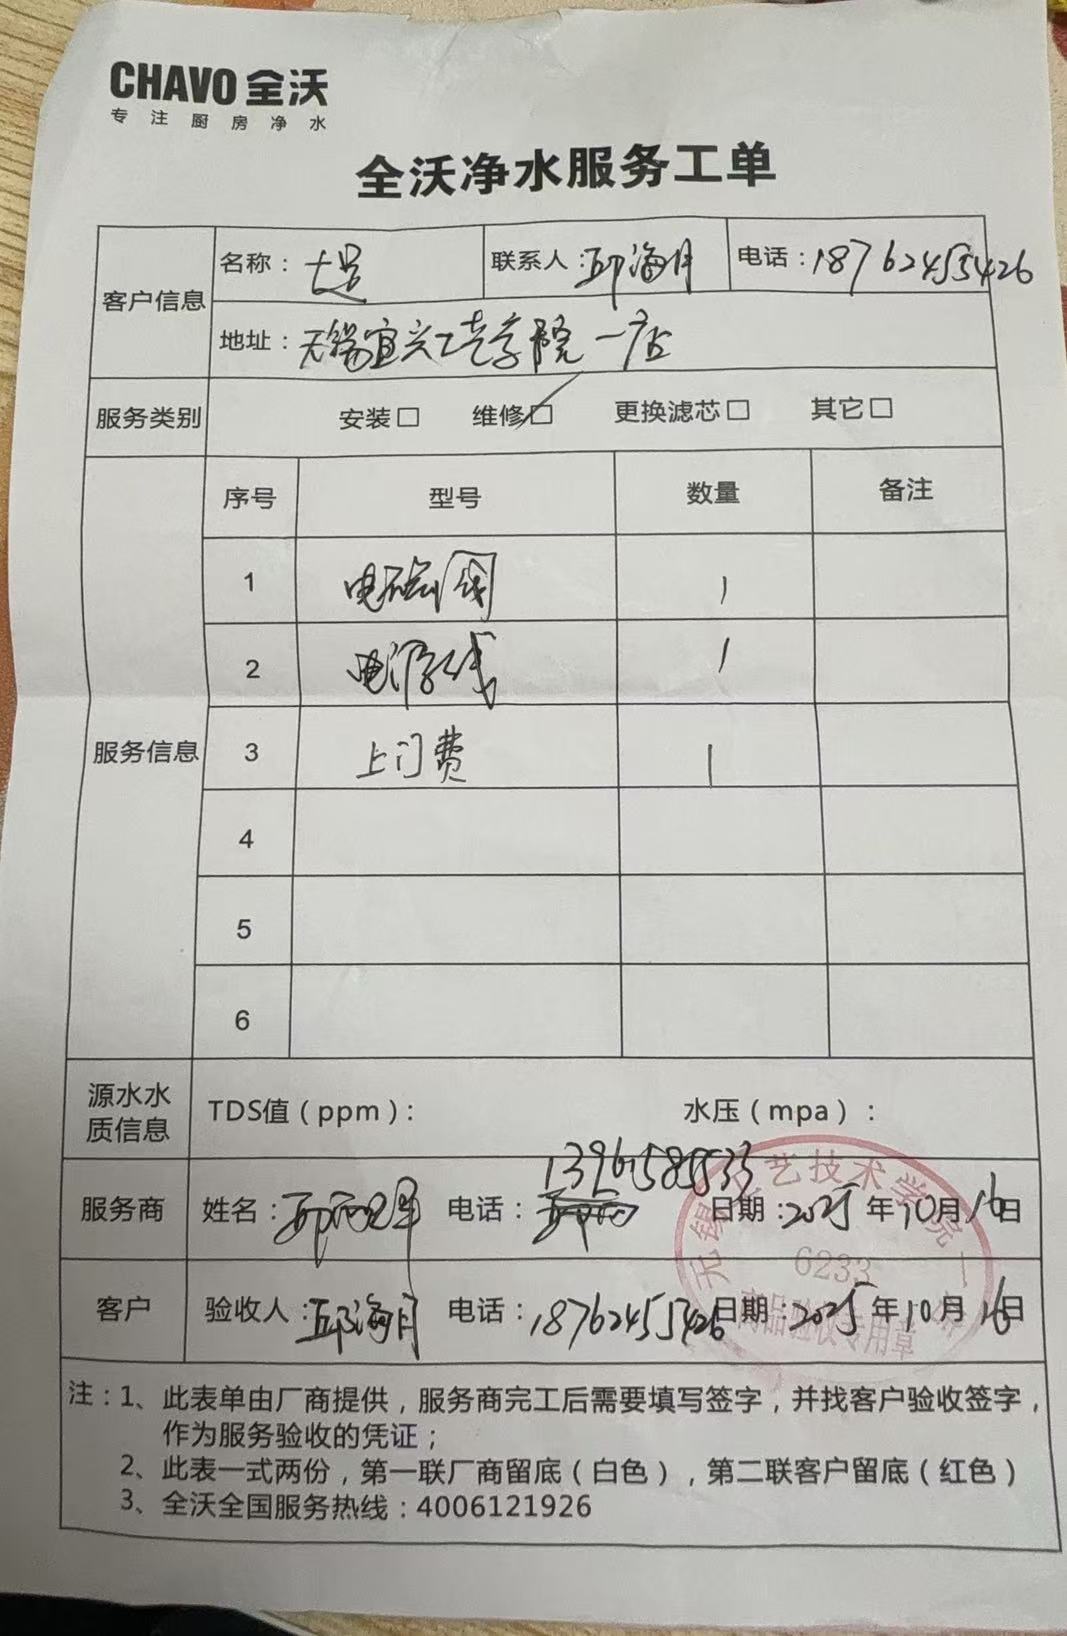 CHAVO 全沃
专注厨房净水
全沃净水服务工单
客户信息 名称： 联系人：邱海月 电话：18762455426
地址：无锡宜兴工艺学院一店
服务类别 安装□ 维修□ 更换滤芯□ 其它□
服务信息 序号 型号 数量 备注
1 电磁阀 1
2 电源线 1
3 上门费 1
4
5
6
源水水质信息 TDS值（ppm）： 水压（mpa）：
服务商 姓名： 电话： 日期：2025年10月16日
客户 验收人：邱海月 电话：18762455426 日期：2025年10月16日
无锡工艺技术学院一
6233
商品验收专用章
注：1、此表单由厂商提供，服务商完工后需要填写签字，并找客户验收签字，
作为服务验收的凭证；
2、此表一式两份，第一联厂商留底（白色），第二联客户留底（红色）
3、全沃全国服务热线：4006121926